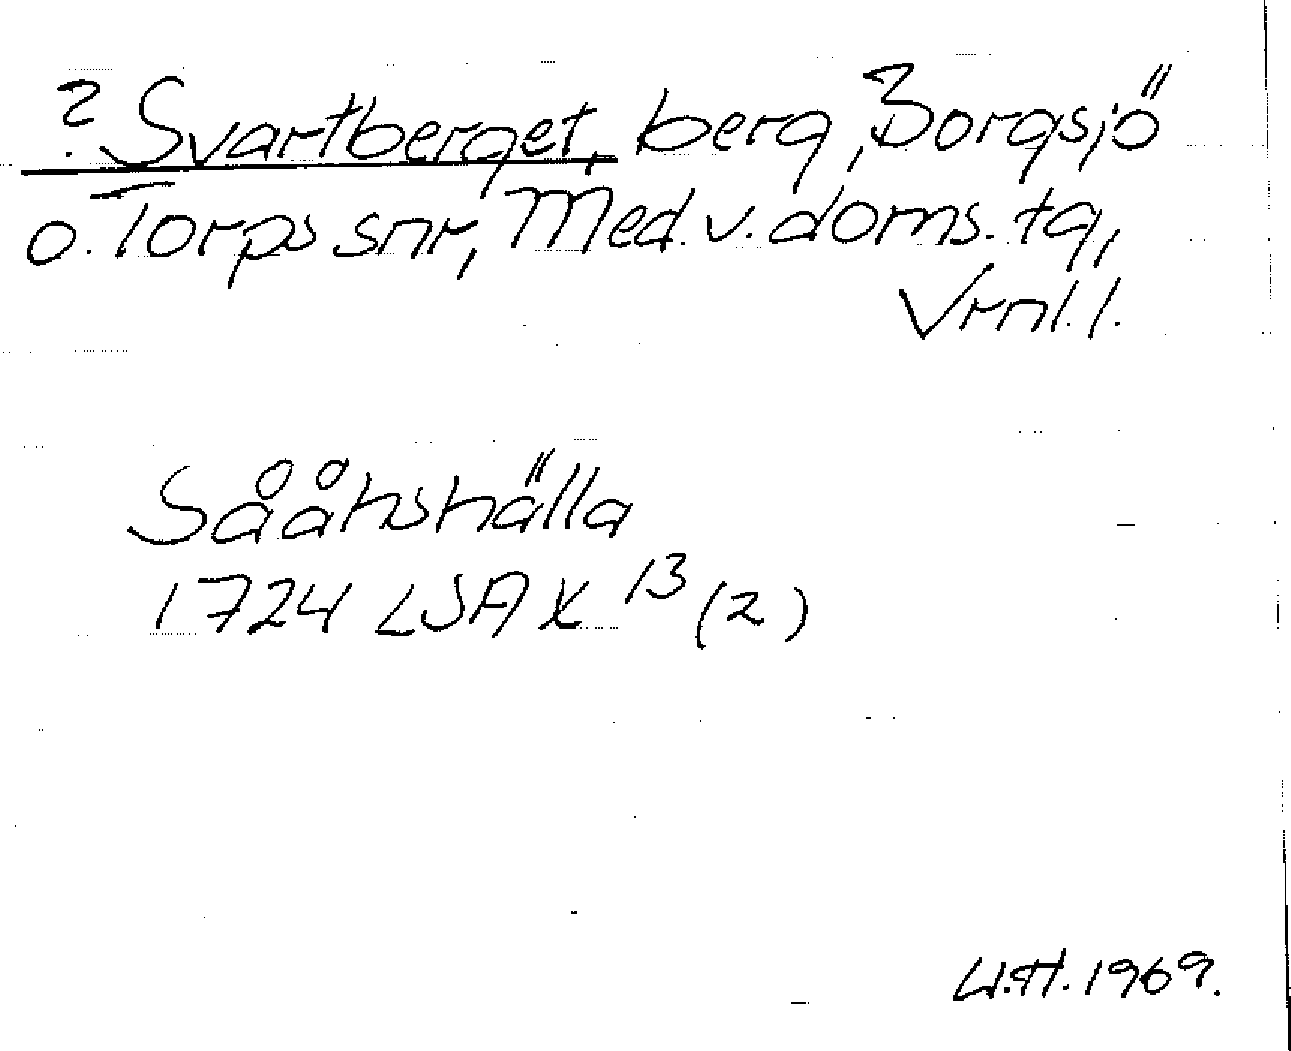 ? Svartberget, berg, Borgsjö
o. Torps snr, Med. v. doms. tg,
Vrnl. l.
Sååhshälla
1724 LSA X 13 (2)
U.H. 1969.